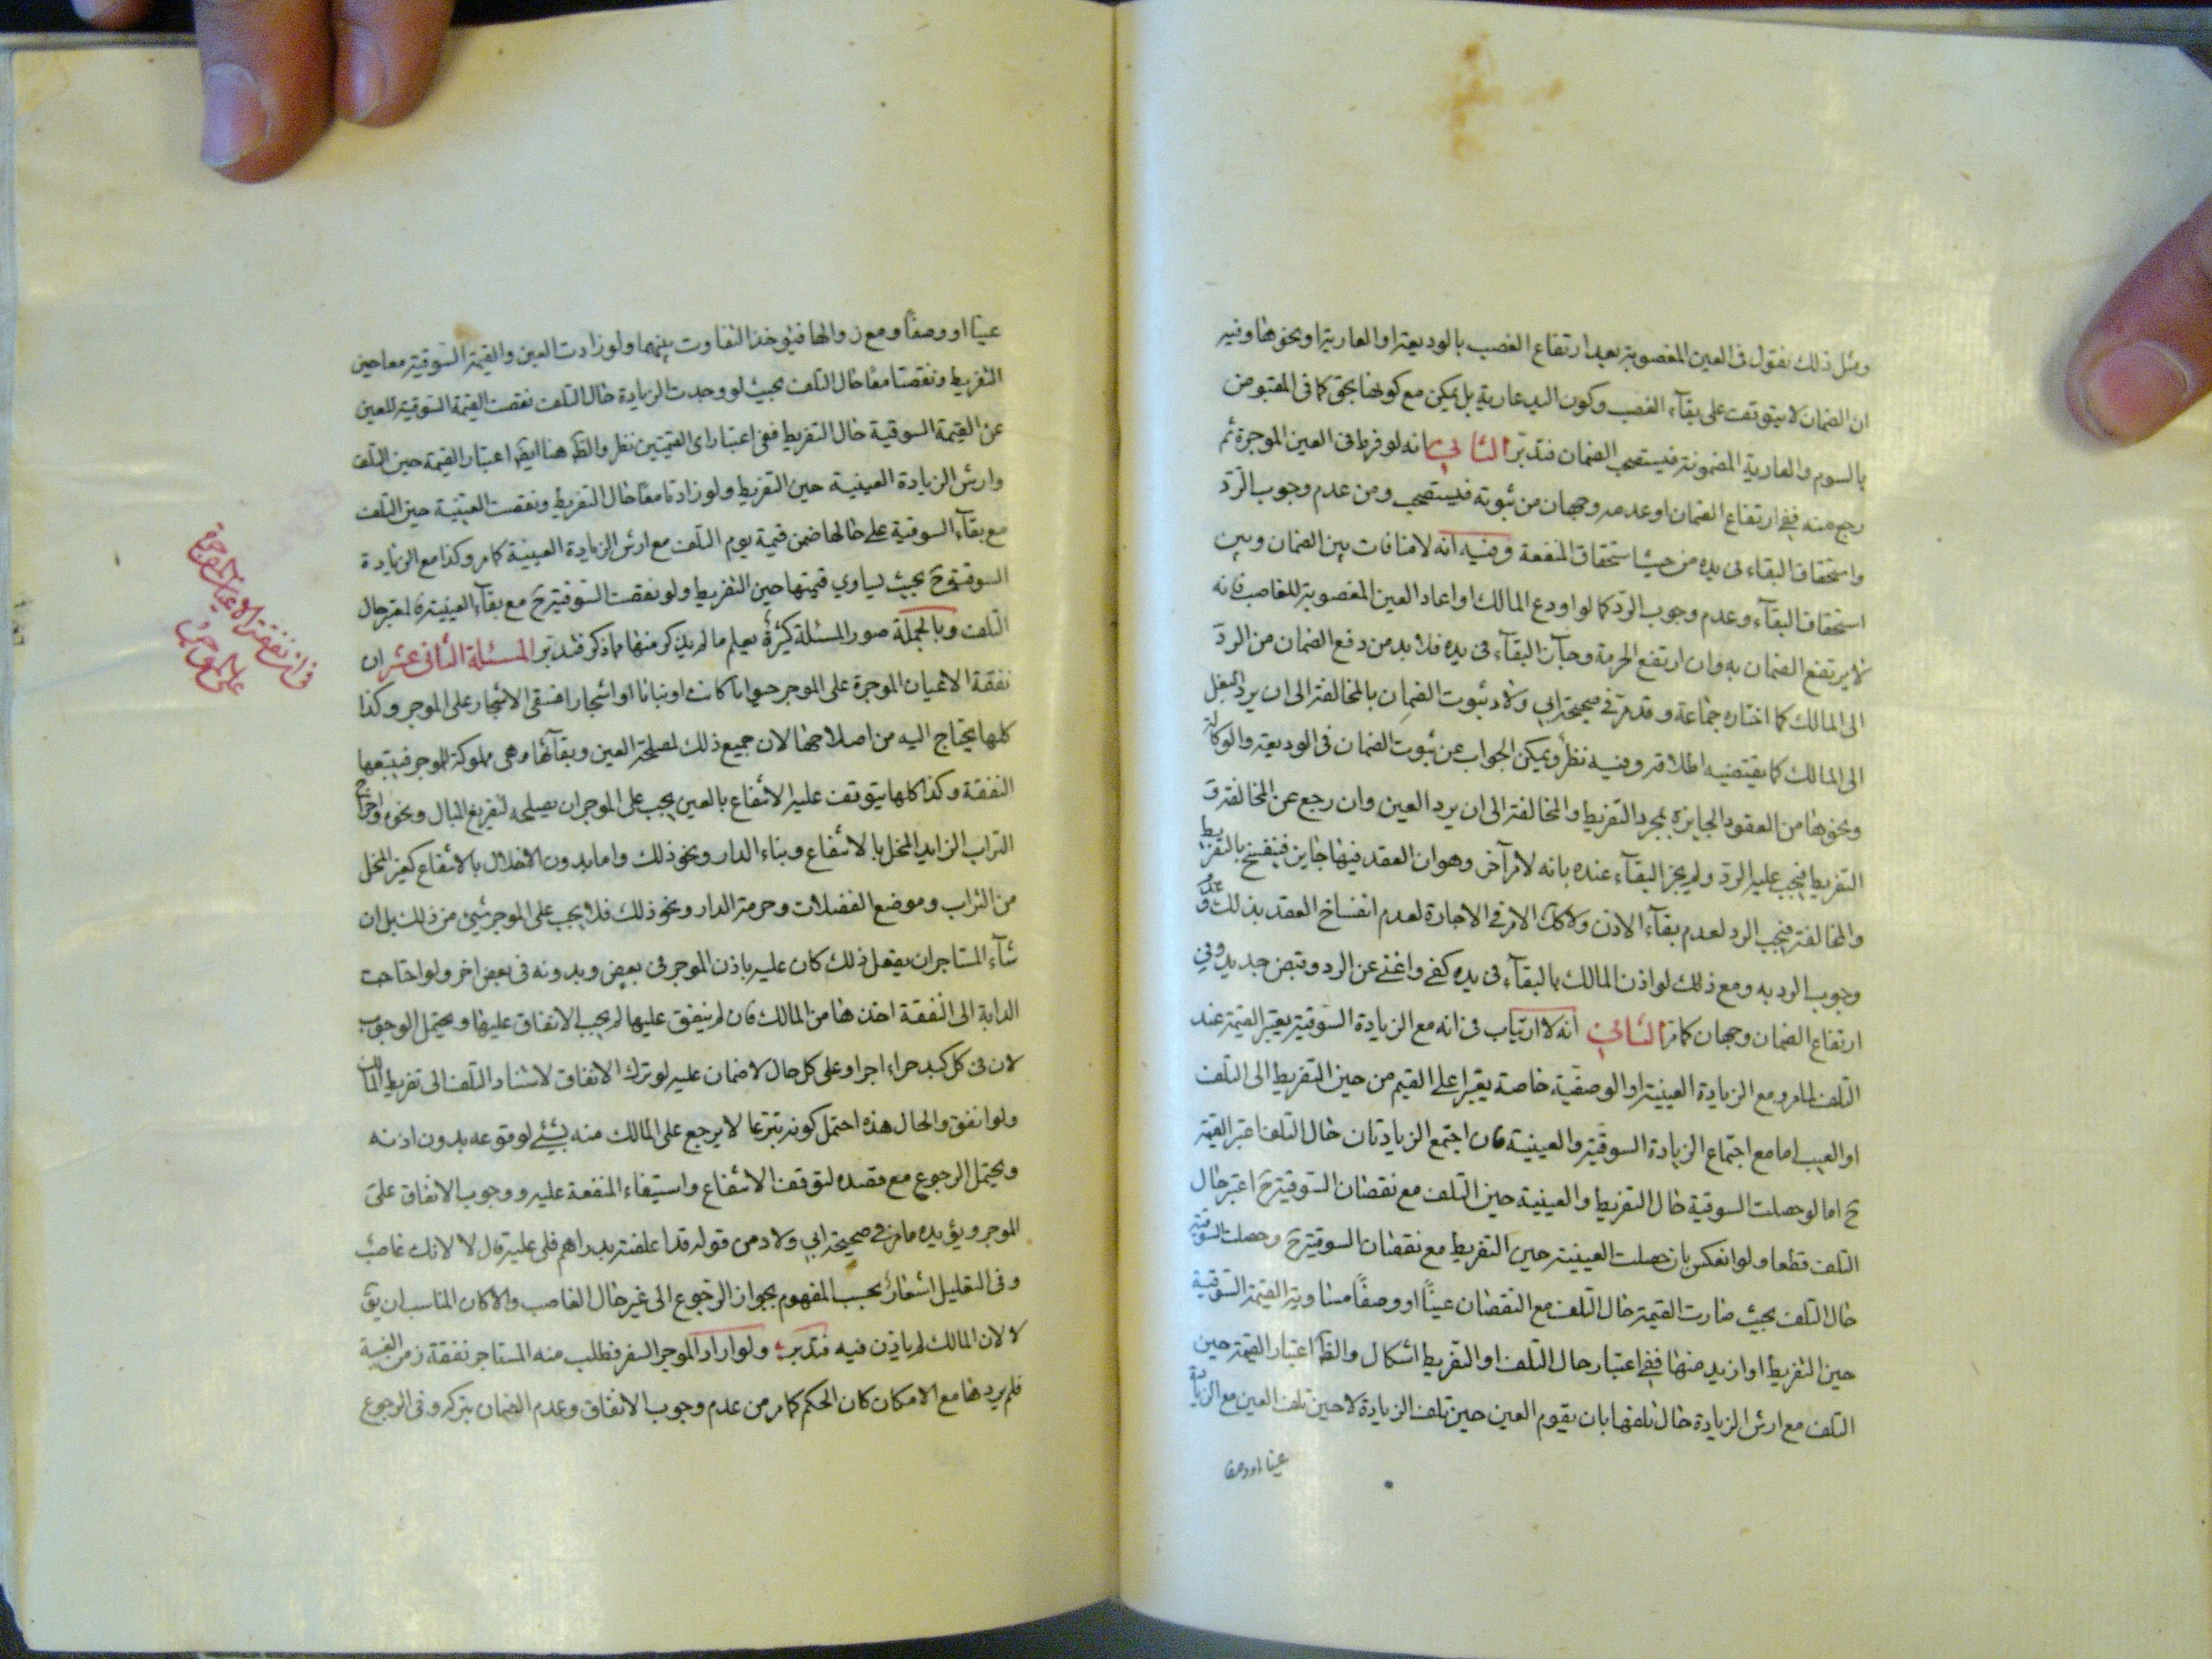 ومثل ذلك نقول فى العين المغصوبة بعد ارتفاع الغصب بالوديعة او العارية او نحوها وفيه
ان الضمان لا يتوقف على بقآء الغصب وكون اليد عارية بل يمكن مع كونها بحق كما فى المقبوض
بالسوم والعارية المضمونة فيستصحب الضمان فتدبّر الثانى انه لو فرط فى العين الموجرة ثم
رجع منه ففى ارتفاع الضمان او عدمه وجهان من ثبوته فيستصحب ومن عدم وجوب الردّ
واستحقاق البقاء فى يده من حيث استحقاق المنفعة وفيه انه لا منافات بين الضمان وبين
استحقاق البقآء وعدم وجوب الردّ كما لو اودع المالك او اعاد العين المغصوبة للغاصب فانه
لا يرتفع الضمان به وان ارتفع الحرمة وجاز البقآء فى يده فلا بد من دفع الضمان من الردّ
الى المالك كما اختاره جماعة وقد مرّ فى صحيحة ابى ولاد ثبوت الضمان بالمخالفة الى ان يرد البغل
الى المالك كما يقتضيه اطلاقه وفيه نظر ويمكن الجواب عن ثبوت الضمان فى الوديعة والوكالة
ونحوها من العقود الجايزة بمجرد التفريط والمخالفة الى ان يرد العين وان رجع عن المخالفة و
التفريط فيجب عليه الردّ ولم يجز البقآء عنده بانه لامر آخر وهو ان العقد فيها جايز فينفسخ بالتفريط
والمخالفة فيجب الرد لعدم بقآء الاذن ولا كك الامر فى الاجارة لعدم انفساخ العقد بذلك وعدم
وجوب الرد به ومع ذلك لو اذن المالك بالبقآء فى يده كفى واغنى عن الرد وقبض جديد وفى
ارتفاع الضمان وجهان كما مرّ الثانى انه لا ارتياب فى انه مع الزيادة السّوقية يعتبر القيمة عند
التلف لما مر ومع الزيادة العينية او الوصفيّة خاصة يعتبر اعلى القيم من حين التفريط الى التلف
او العيب اما مع اجتماع الزيادة السوقية والعينية فان اجتمع الزيادتان حال التلف اعتبر القيمة
ح اما لو حصلت السوقية حال التفريط والعينية حين التلف مع نقصان السّوقية ح اعتبر حال
التلف قطعا ولو انعكس بان حصلت العينية حين التفريط مع نقصان السوقية ح وحصلت السوقية
حال التلف بحيث صارت القيمة حال التلف مع النقصان عينًا او وصفًا مساوية القيمة السّوقية
حين التفريط او ازيد منها ففى اعتبار حال التلف او التفريط اشكال والظ اعتبار القيمة حين
التلف مع ارش الزيادة حال تلفها بان يقوم العين حين تلف الزيادة لا حين تلف العين مع الزيادة
عينا او وصفا
عينا او وصفًا ومع زوالها فيؤخذ التفاوت بينهما ولو زادت العين والقيمة السّوقية معا حين
التفريط ونقصتا معًا حال التلف بحيث لو وجدت الزيادة حال التلف نقصت القيمة السّوقية للعين
عن القيمة السوقية حال التفريط ففى اعتبار اى القيمتين نظر والظ هنا ايضا اعتبار القيمة حين التلف
وارش الزيادة العينية حين التفريط ولو زادتا معًا حال التفريط ونقصت العينية حين التلف
مع بقآء السوقية على حالها ضمن قيمة يوم التلف مع ارش الزيادة العينية كما مر وكذا مع الزيادة
السوقية ح بحيث يساوي قيمتها حين التفريط ولو نقصت السّوقية ح مع بقآء العينية فالمعتبر حال
التلف وبالجملة صور المسئلة كثيرة يعلم ما لم يذكر منها مما ذكر فتدبّر المسئلة الثانى عشر ان
نفقة الاعيان الموجرة على الموجر حيوانا كانت او نباتا او اشجارا فسقى الاشجار على الموجر وكذا
كلما يحتاج اليه من اصلاحها لان جميع ذلك لمصلحة العين وبقآئها وهى مملوكة للموجر فيتبعها
النفقة وكذا كلما يتوقف عليه الانتفاع بالعين يجب على الموجر ان يصلحه لتفريغ البال ونحوه واخراج
التراب الزايد المخل بالانتفاع وبناء الدار ونحو ذلك واما بدون الاخلال بالانتفاع كغير المخل
من التراب وموضع الفضلات وحرمة الدار ونحو ذلك فلا يجب على الموجر شىء من ذلك بل ان
شآء المستاجر ان يفعل ذلك كان عليه باذن الموجر فى بعض وبدونه فى بعض اخر ولو احتاجت
الدابة الى النّفقة اخذها من المالك فان لم ينفق عليها لم يجب الانفاق عليها ويحتمل الوجوب
لان فى كل كبد حراء اجرا وعلى كل حال لا ضمان عليه لو ترك الانفاق لاستناد التلف الى تفريط المالك
ولو انفق والحال هذه احتمل كونه تبرعا لا يرجع على المالك منه بشئ لوقوعه بدون اذنه
ويحتمل الرجوع مع قصده لتوقف الانتفاع واستيفاء المنفعة عليه ووجوب الانفاق على
الموجر ويؤيده ما مرّ فى صحيحة ابى ولاد من قوله قد اعلفته بدراهم فلى عليه قال لا لانك غاصب
وفى التعليل اشعار بحسب المفهوم بجواز الرّجوع الى غير حال الغاصب والا كان المناسب ان يق
لا لان المالك لم ياذن فيه فتدبر ولو اراد الموجر السفر فطلب منه المستاجر نفقة زمن الغيبة
فلم يردها مع الامكان كان الحكم كما مر من عدم وجوب الانفاق وعدم الضمان بتركه وفى الرجوع
فى ان نفقة الاعيان الموجرة
على الموجر